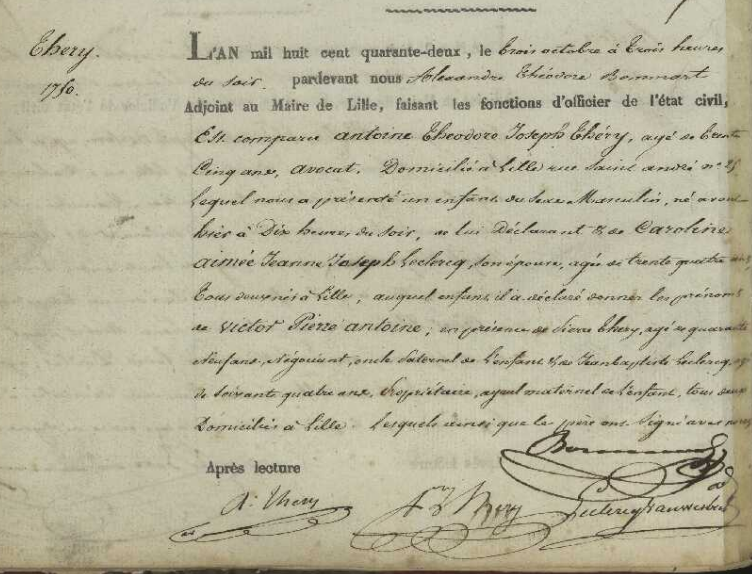 Thery.
1750.
L'AN mil huit cent quarante-deux, le trois octobre à Trois heures
du soir. pardevant nous Alexandre Théodore Bommart
Adjoint au Maire de Lille, faisant les fonctions d'officier de l'état civil,
Est comparu antoine Theodore Joseph Théry, agé de trente
Cinq ans, avocat, Domicilié à Lille rue Saint andré n°
Lequel nous a présenté un enfant du Sexe Masculin, né avant
hier à Dix heures du Soir, de lui Déclarant & de Caroline
aimée Jeanne Joseph Leclercq, son épouse, agée de trente quatre ans
Tous deux nés à Lille, auquel enfant il a déclaré donner les prénoms
de Victor Pierre antoine; en présence de Pierre Théry, agé de quarante
Neuf ans, Négociant, oncle Paternel de l'enfant & de Jean baptiste Leclercq, agé
de soixante quatre ans, Propriétaire, ayeul maternel de l'enfant, tous deux
Domiciliés à Lille. Lesquels ainsi que le père ont Signé avec nous
Après lecture
A. Thery
Thery
Leclercq